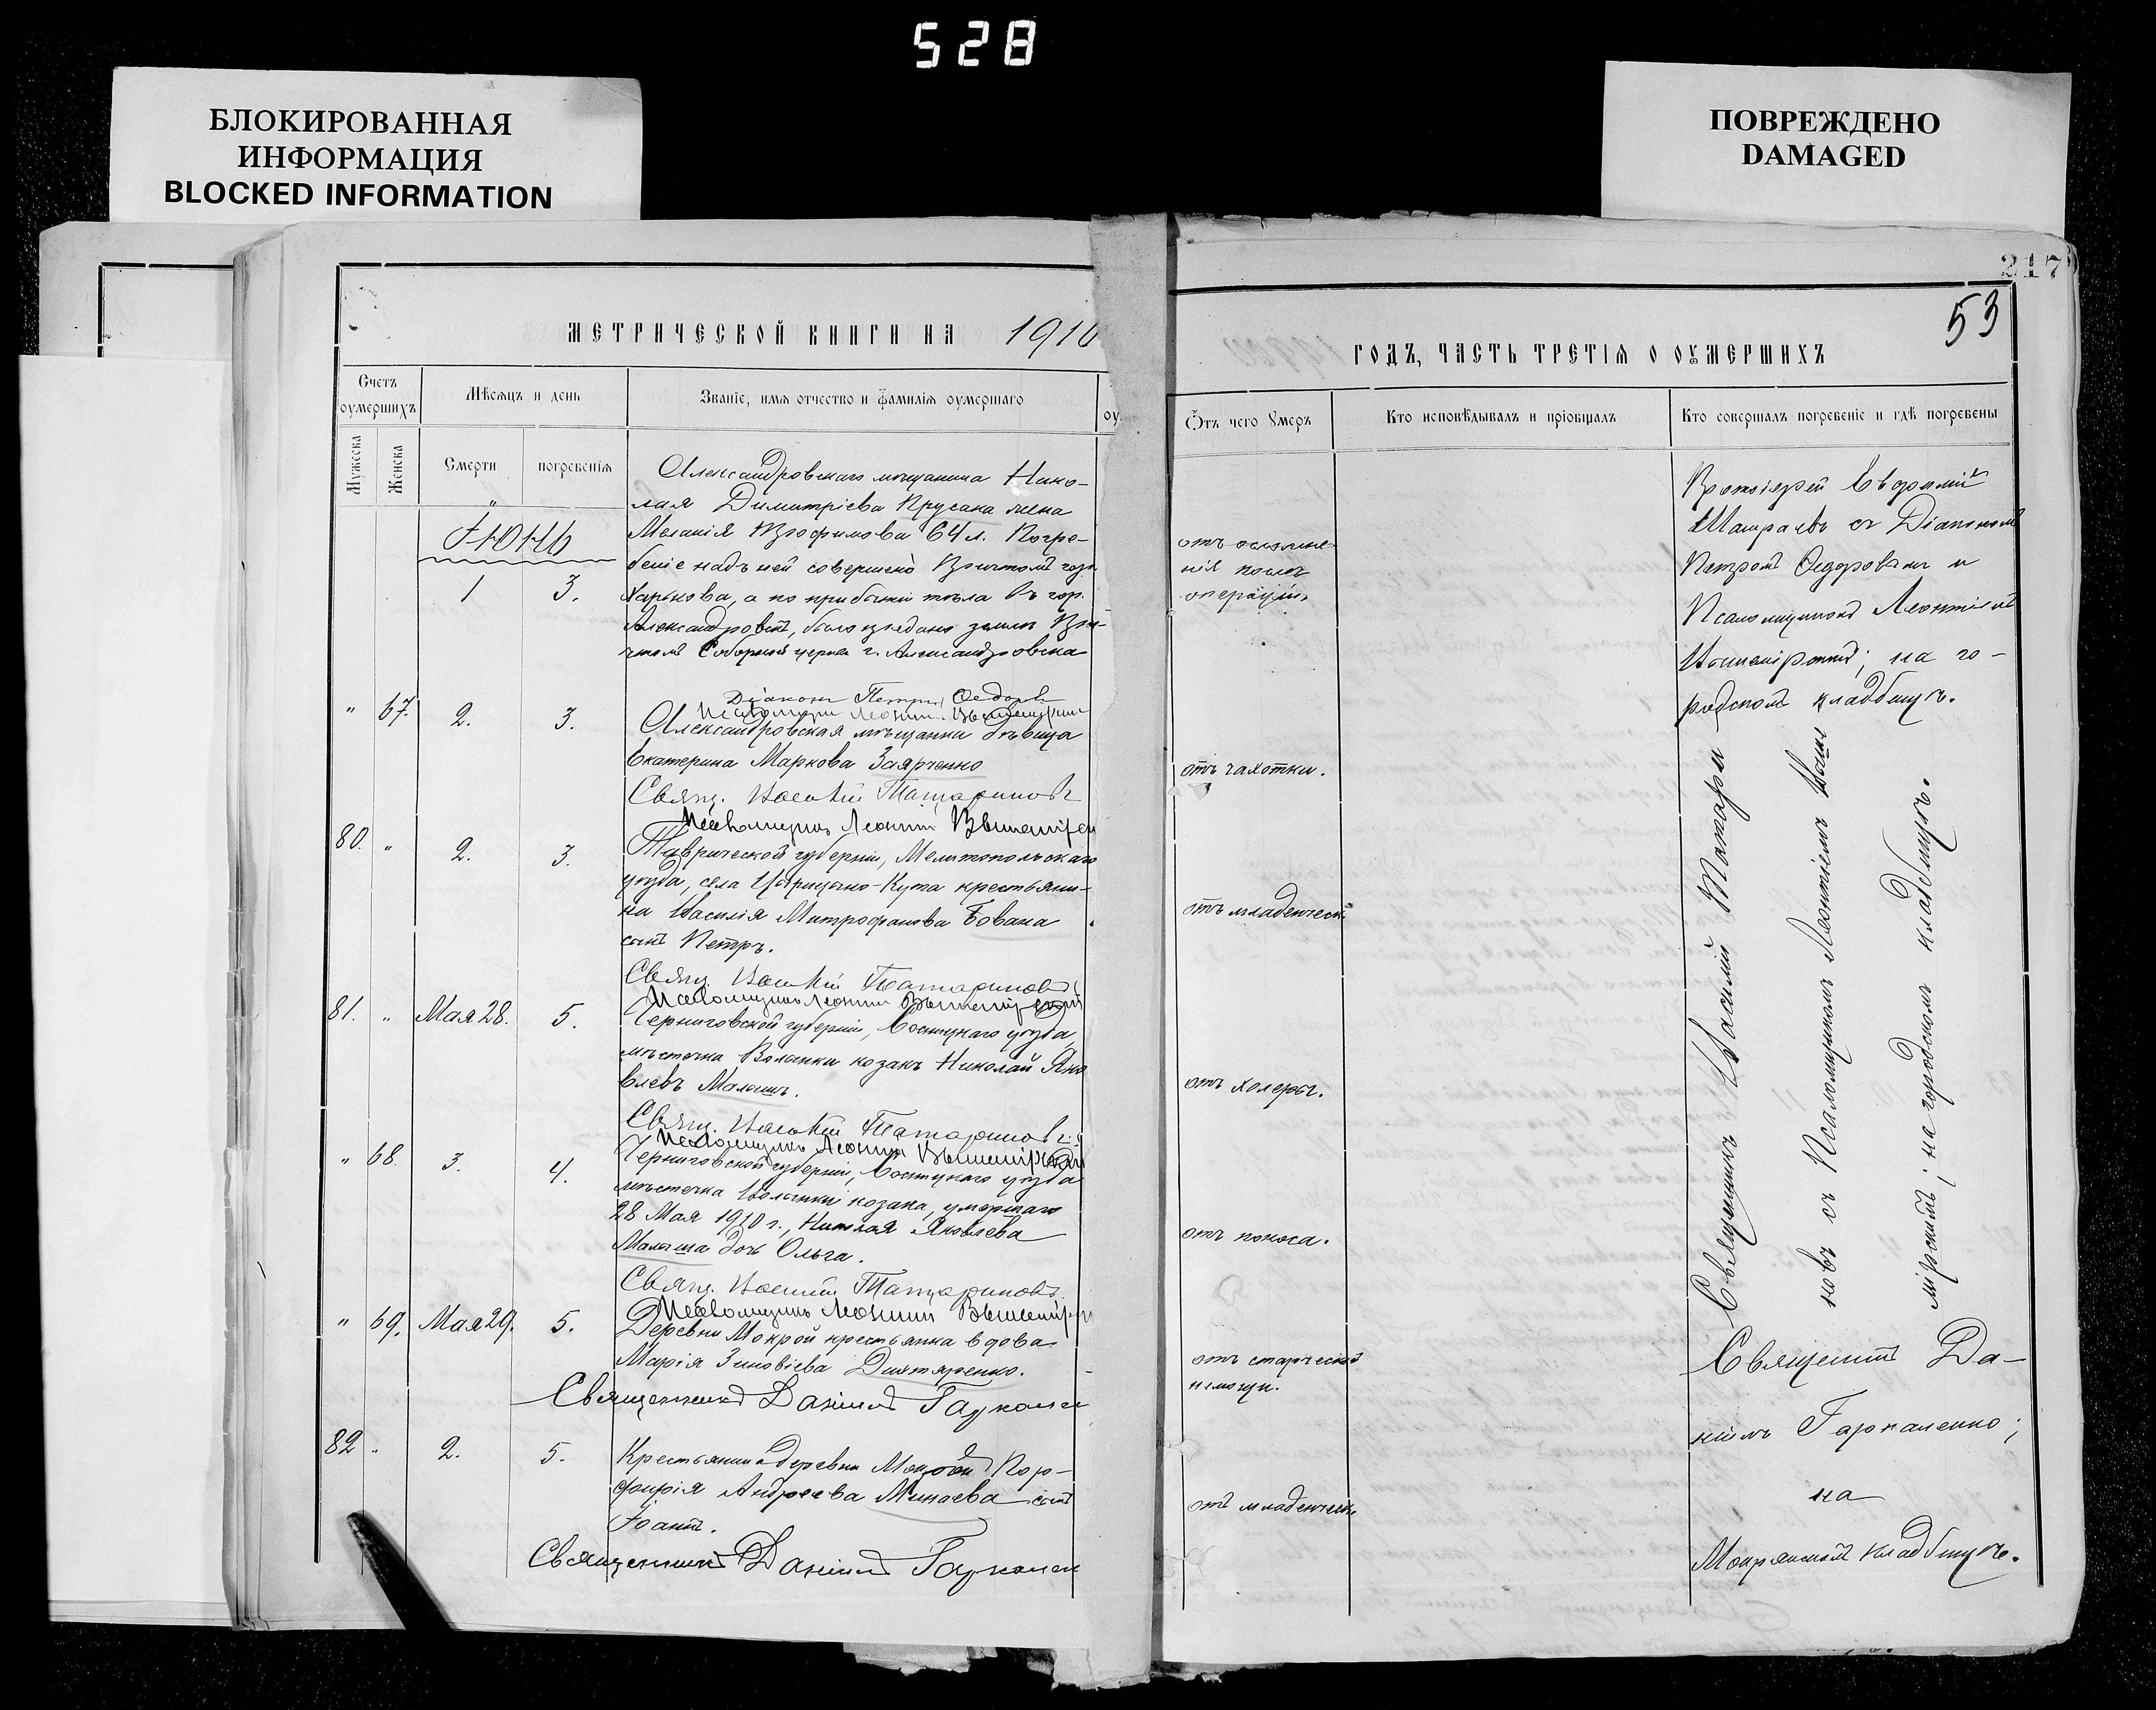 528
БЛОКИРОВАННАЯ
ИНФОРМАЦИЯ
BLOCKED INFORMATION
ПОВРЕЖДЕНО
DAMAGED
217
53
МЕТРИЧЕСКОЙ КНИГИ НА 1910
ГОДЪ, ЧАСТЬ ТРЕТІЯ О ОУМЕРШИХЪ
Счетъ
оумершихъ
Мужеска
Женска
Мѣсяцъ и день
Смерти
погребенія
Званіе, имя отчество и фамилія оумершаго
оу
Отъ чего умеръ
Кто исповѣдывалъ и пріобщалъ
Кто совершалъ погребеніе и гдѣ погребены
"
Іюнь
1 3.
Александровскаго мѣщанина Нико-
лая Димитріева Прусака жена
Меланія Трофимова 64 л. Погре-
беніе надъ ней совершено Причтомъ гор.
Харькова, а по прибытіи тѣла въ гор.
Александровскъ, было предано землѣ При-
чтомъ Соборной церкви г. Александровска
Діаконъ Петръ Ѳедоровъ
отъ
нія послѣ
операціи.
Протоіерей
съ Діакономъ
Петромъ и
Псаломщикомъ Леонтіемъ
на го-
родскомъ кладбищѣ.
" 67. 2. 3.
Александровская мѣщанка дѣвица
Екатерина Маркова Заярченко
Свящ. Василій Татариновъ
Псаломщикъ Леонтій
отъ чахотки.
80. " 2. 3.
Таврической губерніи, Мелитопольскаго
уѣзда, села Царицыно-Кута крестьяни-
на Василія Митрофанова Бована
сынъ Петръ.
Свящ. Василій Татариновъ
Псаломщикъ Леонтій
отъ младенческ.
81. " Мая 28. 5.
Черниговской губерніи, уѣзда,
мѣстечка козакъ Николай Яко
влевъ Малышъ.
Свящ. Василій Татариновъ
Псаломщикъ Леонтій
отъ холеры.
" 68. 3. 4.
Черниговской губерніи, уѣзда
мѣстечка козака, умершаго
28 Мая 1910 г., Николая Яковлева
Малыша дочь Ольга.
Свящ. Василій Татариновъ
Псаломщикъ Леонтій
отъ поноса.
Священникъ Василій Татари-
новъ съ Псаломщикомъ Леонтіемъ Выше
мірскимъ; на городскомъ кладбищѣ.
" 69. Мая 29. 5.
Деревни Мокрой крестьянка вдова
Марія Зиновіева Дихтяренко.
Священникъ Даніилъ Гаркале
отъ старческой
немощи.
82 " 2. 5.
Крестьянина деревни Мокрой Пор-
фирія Андреева Минаева сынъ
Іоаннъ.
Священникъ Даніилъ Гаркале
отъ младенческ.
Священникъ Да-
ніилъ Гаркаленко;
на
Мокрянскомъ кладбищѣ.